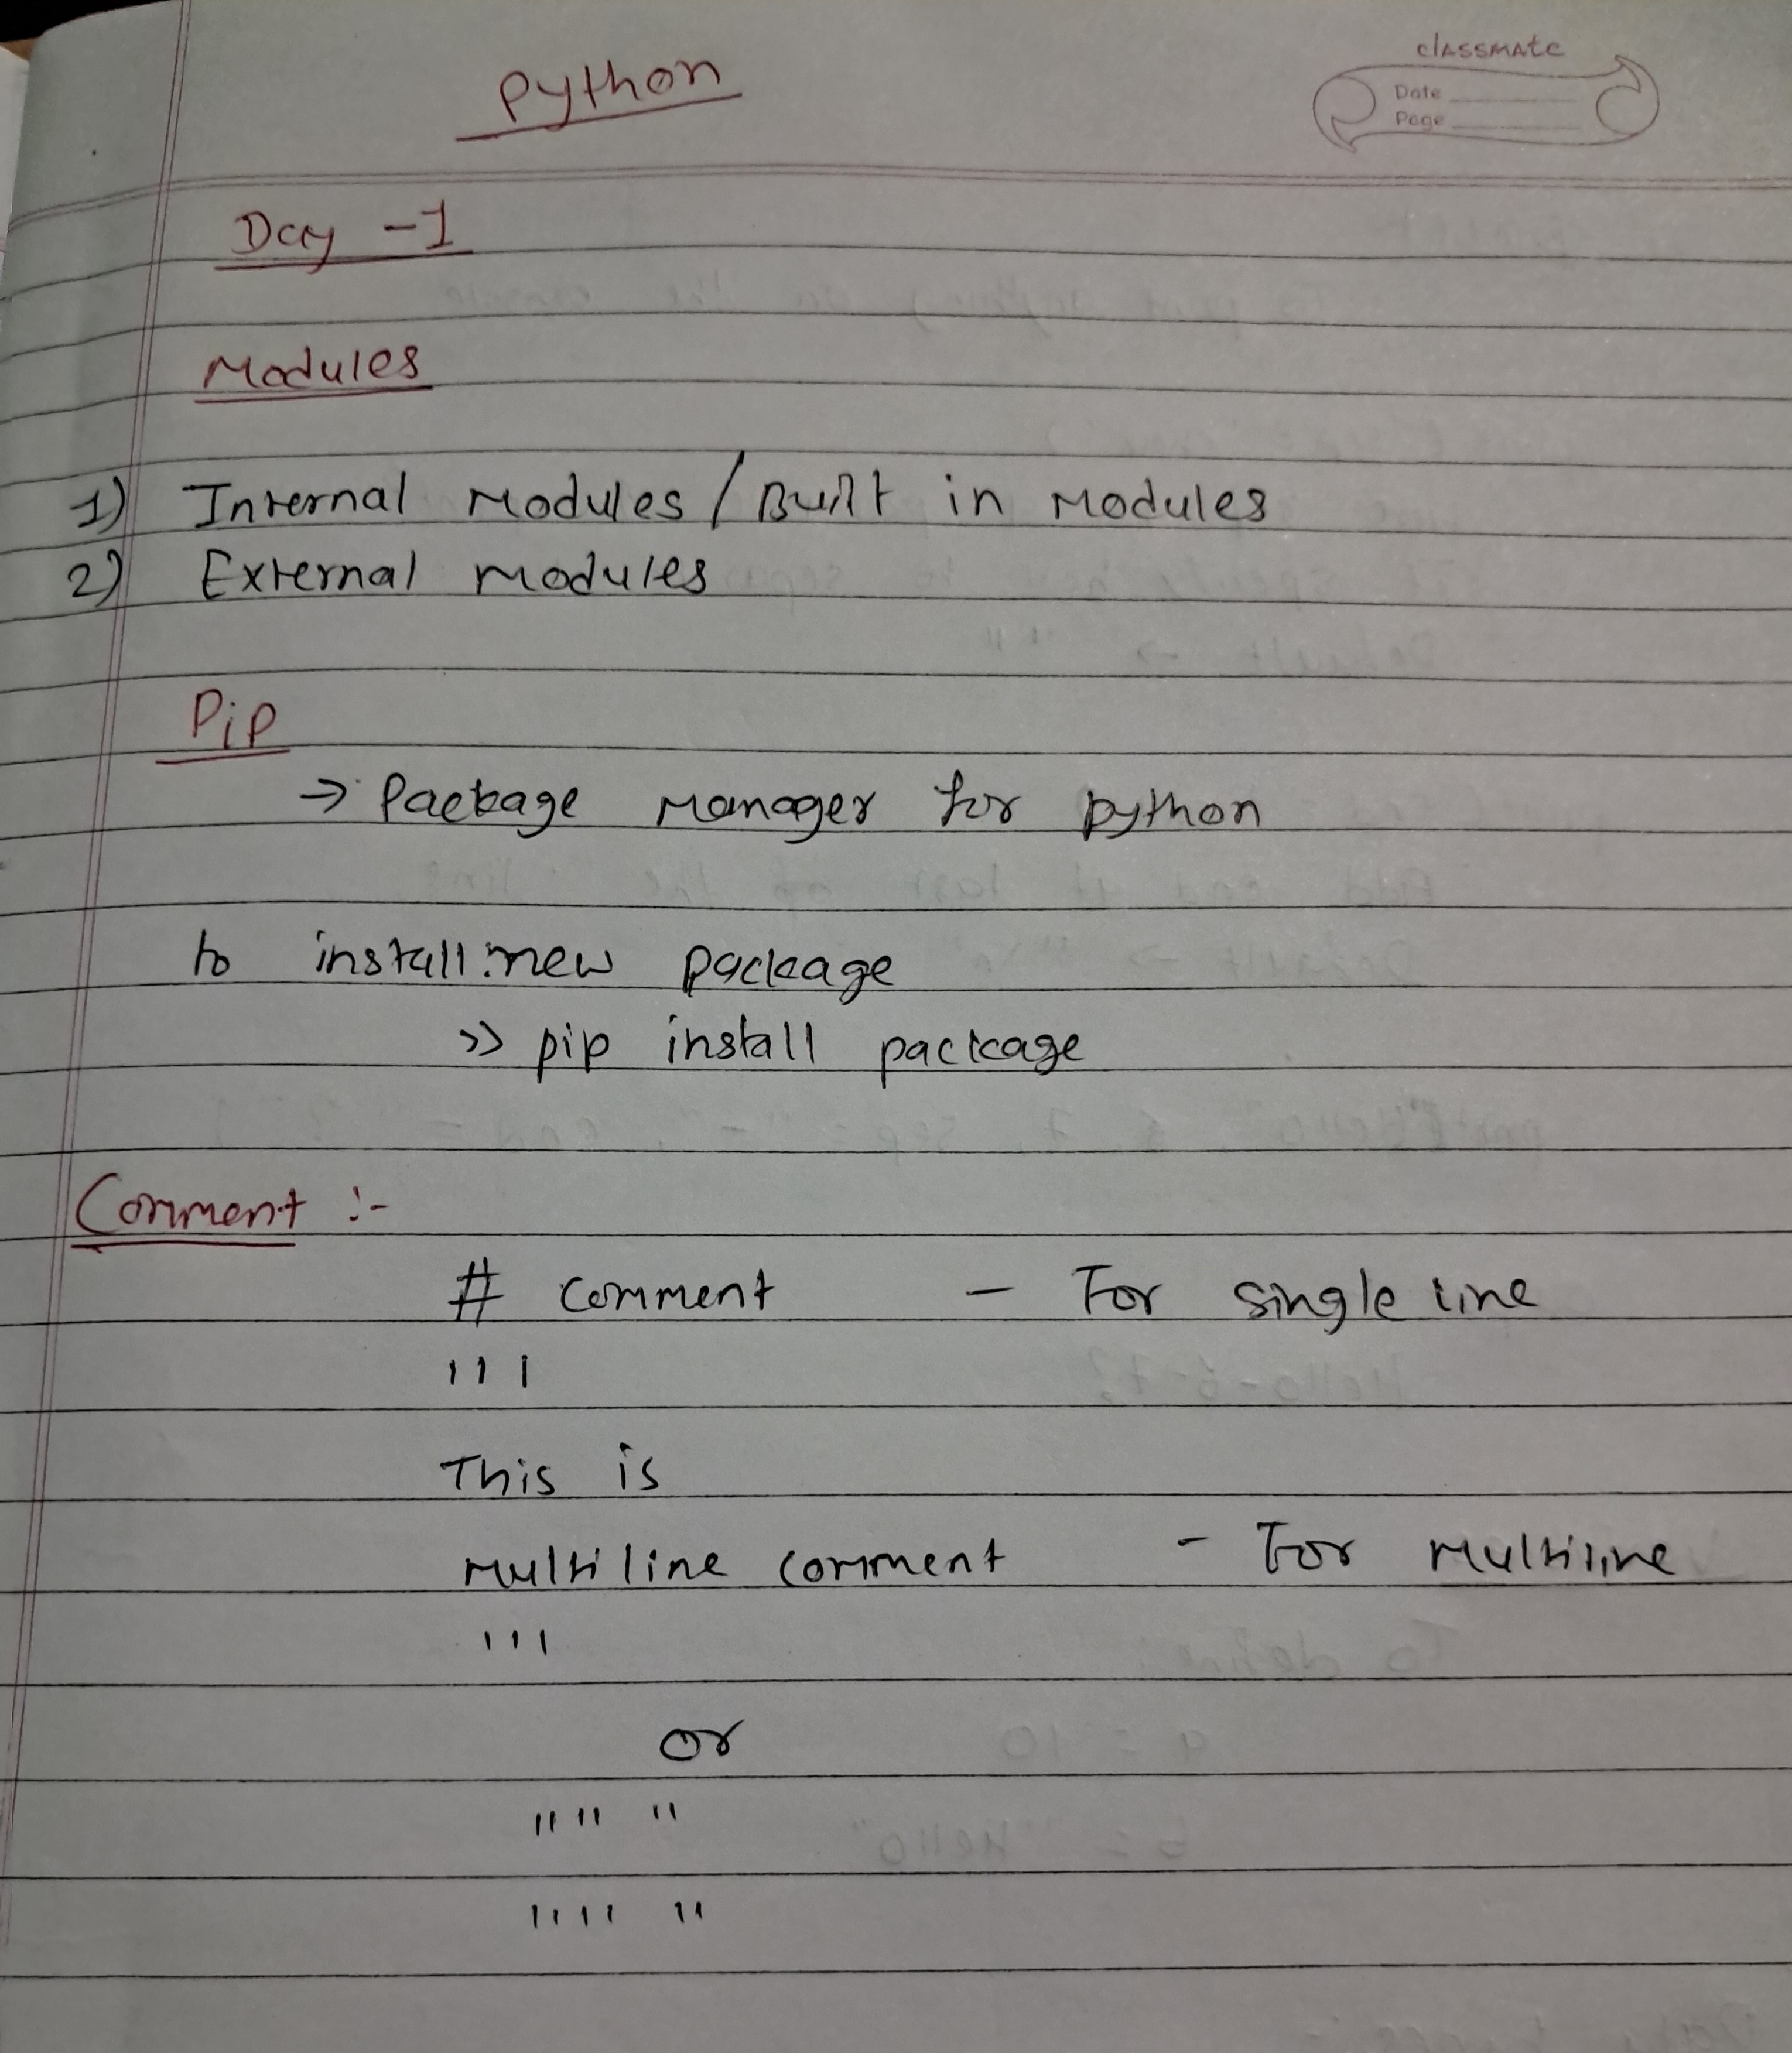 Python
classmate
Date
Page
Day -1
Modules
1) Internal Modules / Built in Modules
2) External modules
Pip
→ Package Manager for python
to install new package
>> pip install package
Comment :-
# comment - For single line
'''
This is
Multiline comment - For Multiline
'''
or
" " "
" " "